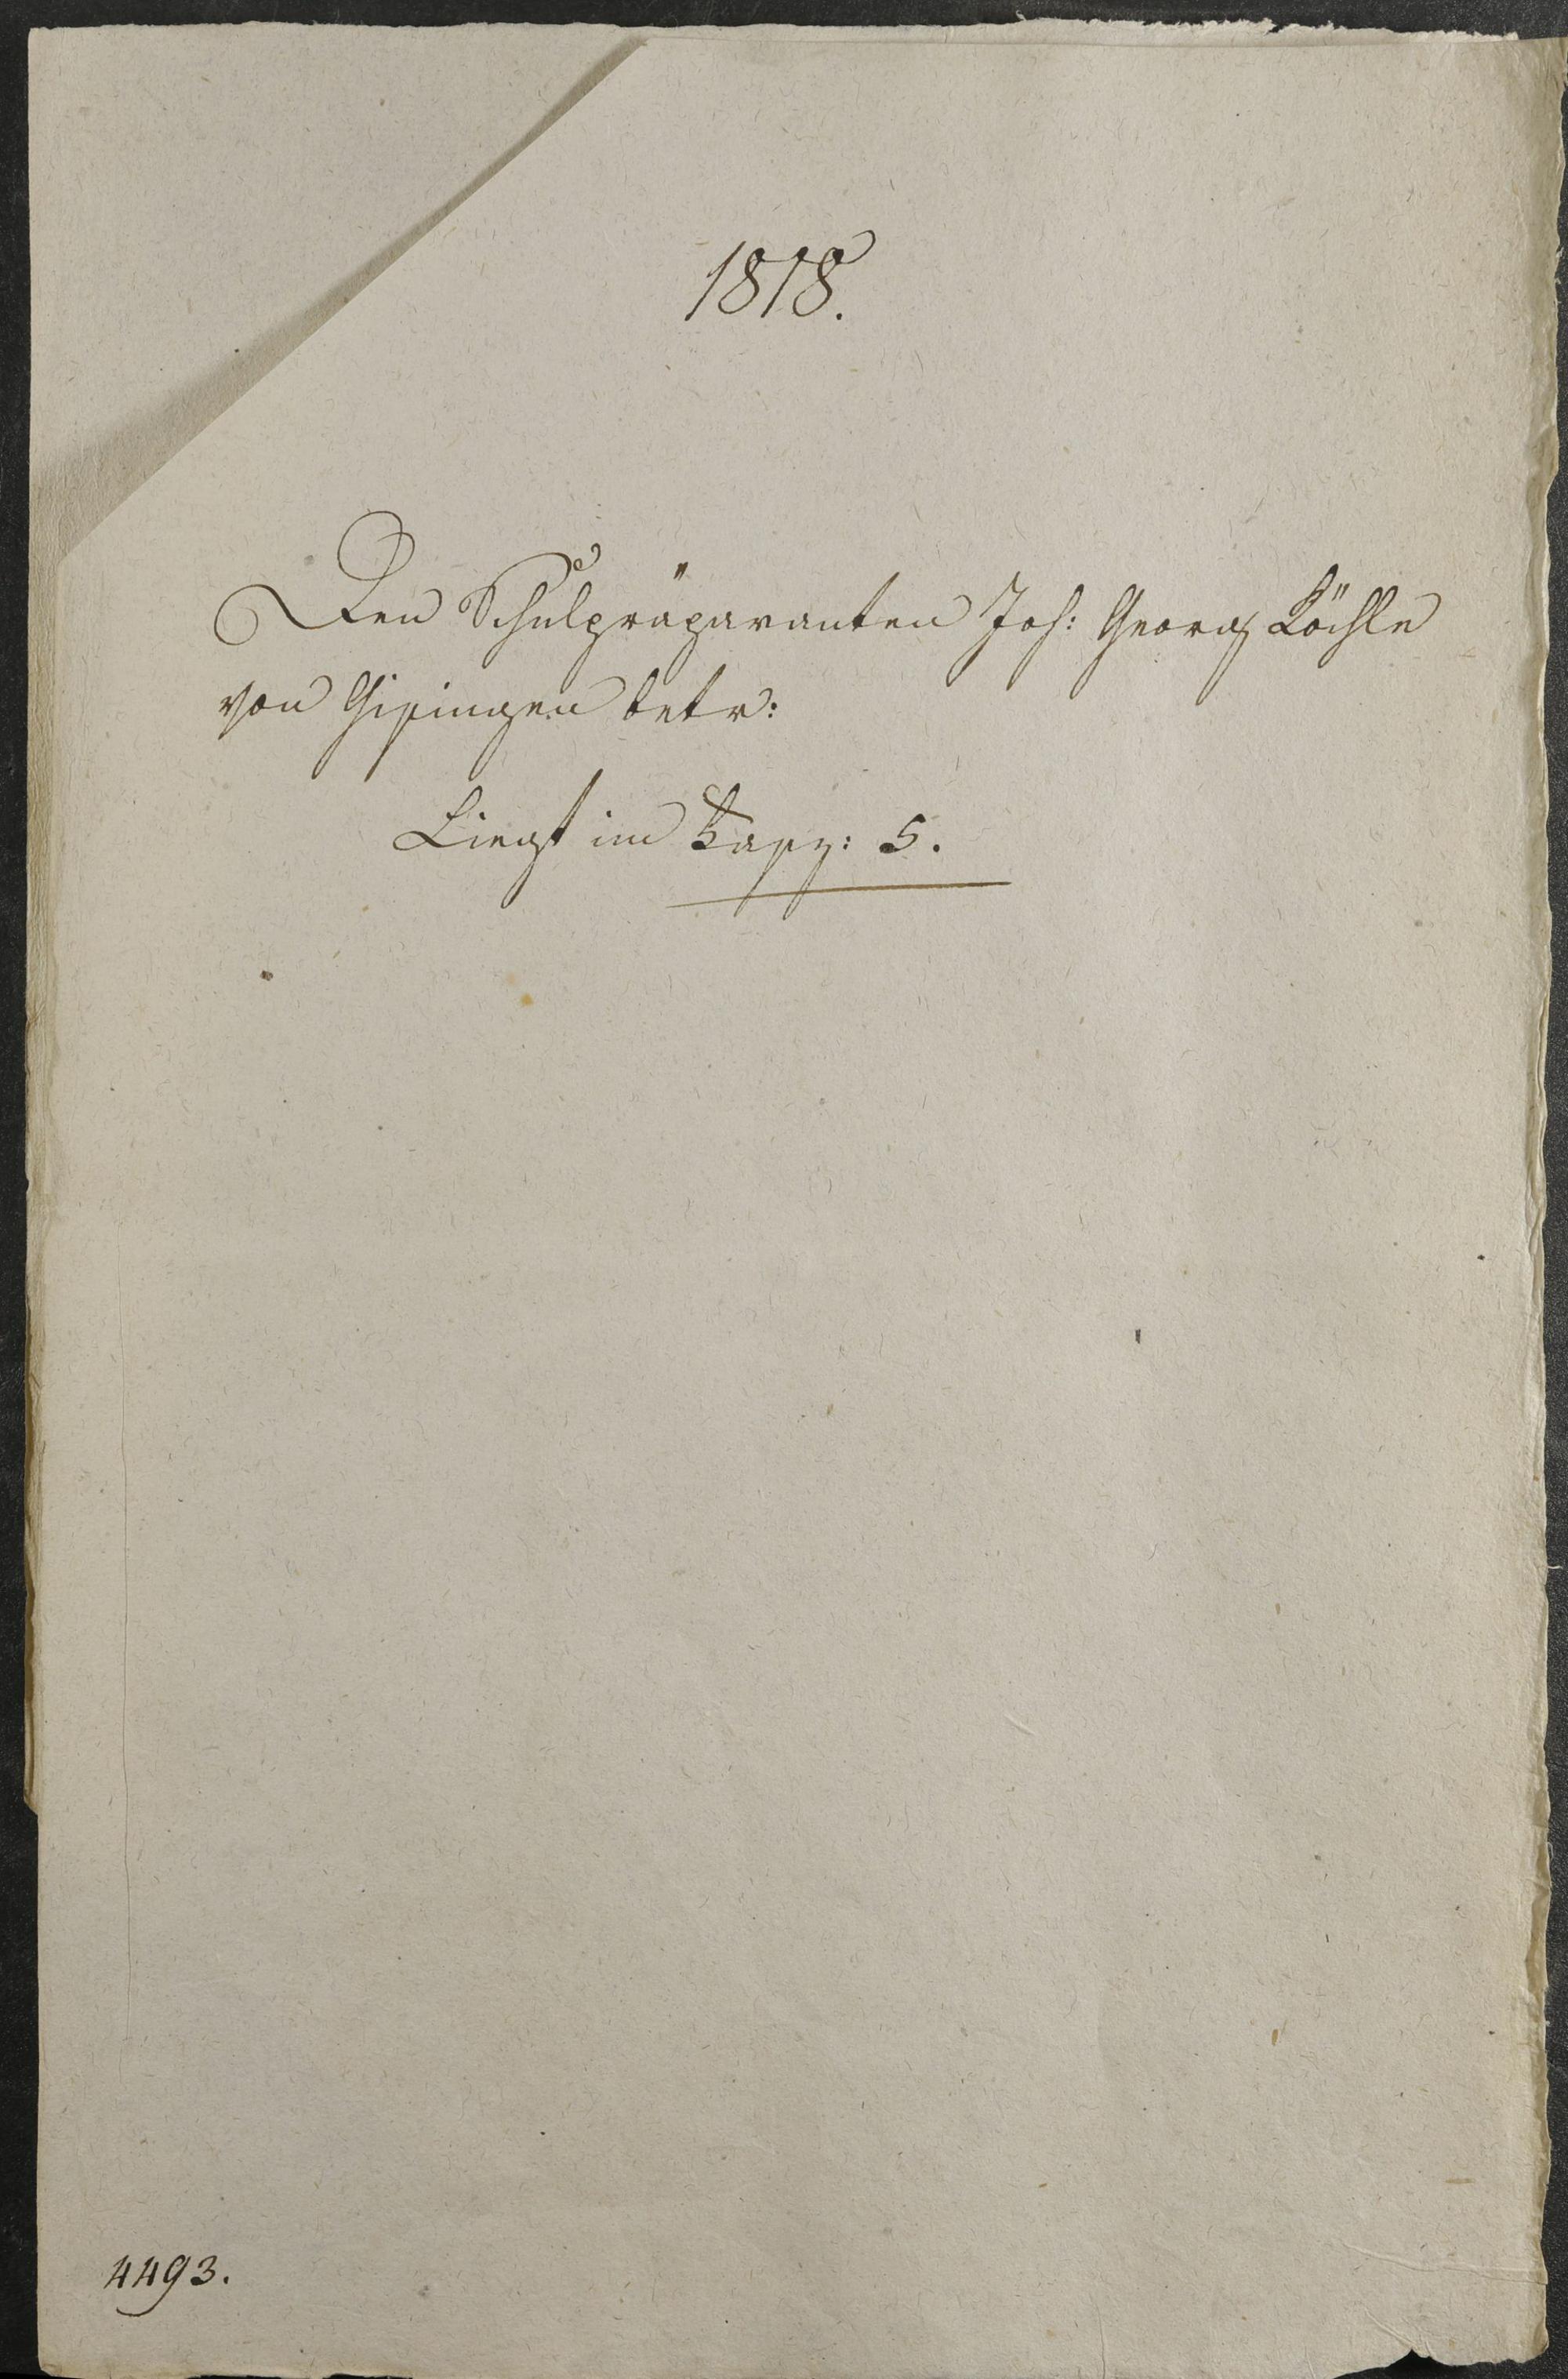 1818.
Den Schulpräparanten Joh: Georg Köchle
von Gisingen betr:
Liegt im Fasz: 5.
4493.